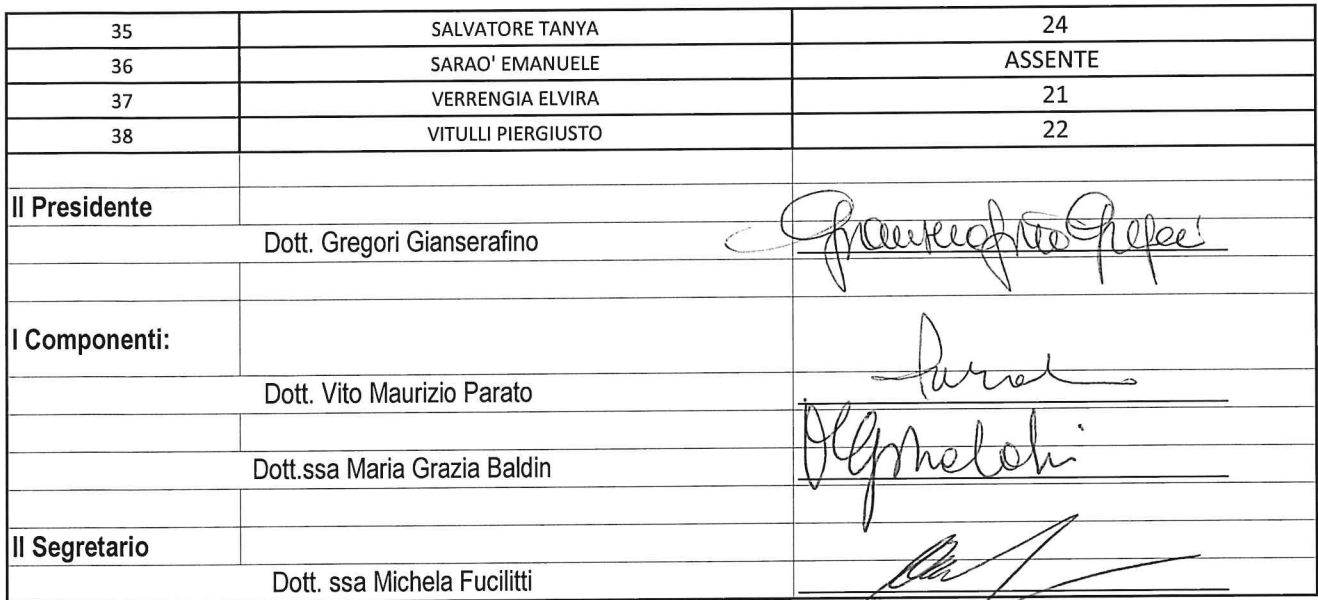 35 SALVATORE TANYA 24
36 SARAO' EMANUELE ASSENTE
37 VERRENGIA ELVIRA 21
38 VITULLI PIERGIUSTO 22
Il Presidente
Dott. Gregori Gianserafino
I Componenti:
Dott. Vito Maurizio Parato
Dott.ssa Maria Grazia Baldin
Il Segretario
Dott. ssa Michela Fucilitti